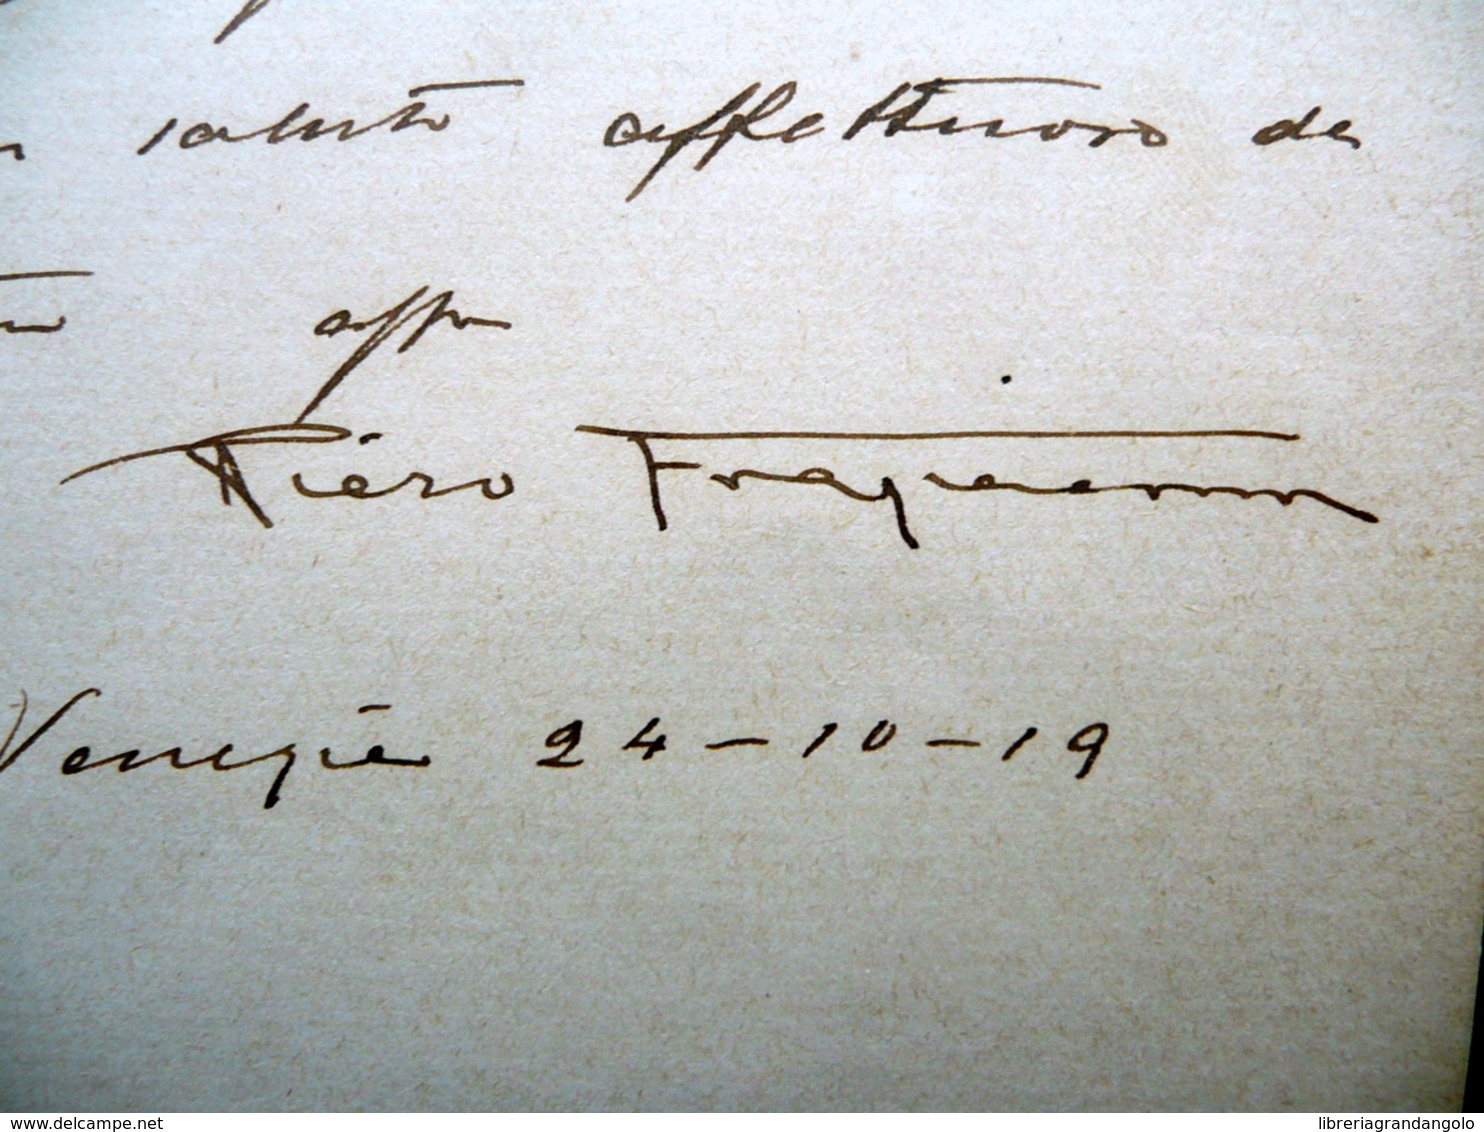 saluto affettuoso de
aff
Piero Fragiacomo
Venezia 24-10-19
www.delcampe.net
libreriagrandangolo